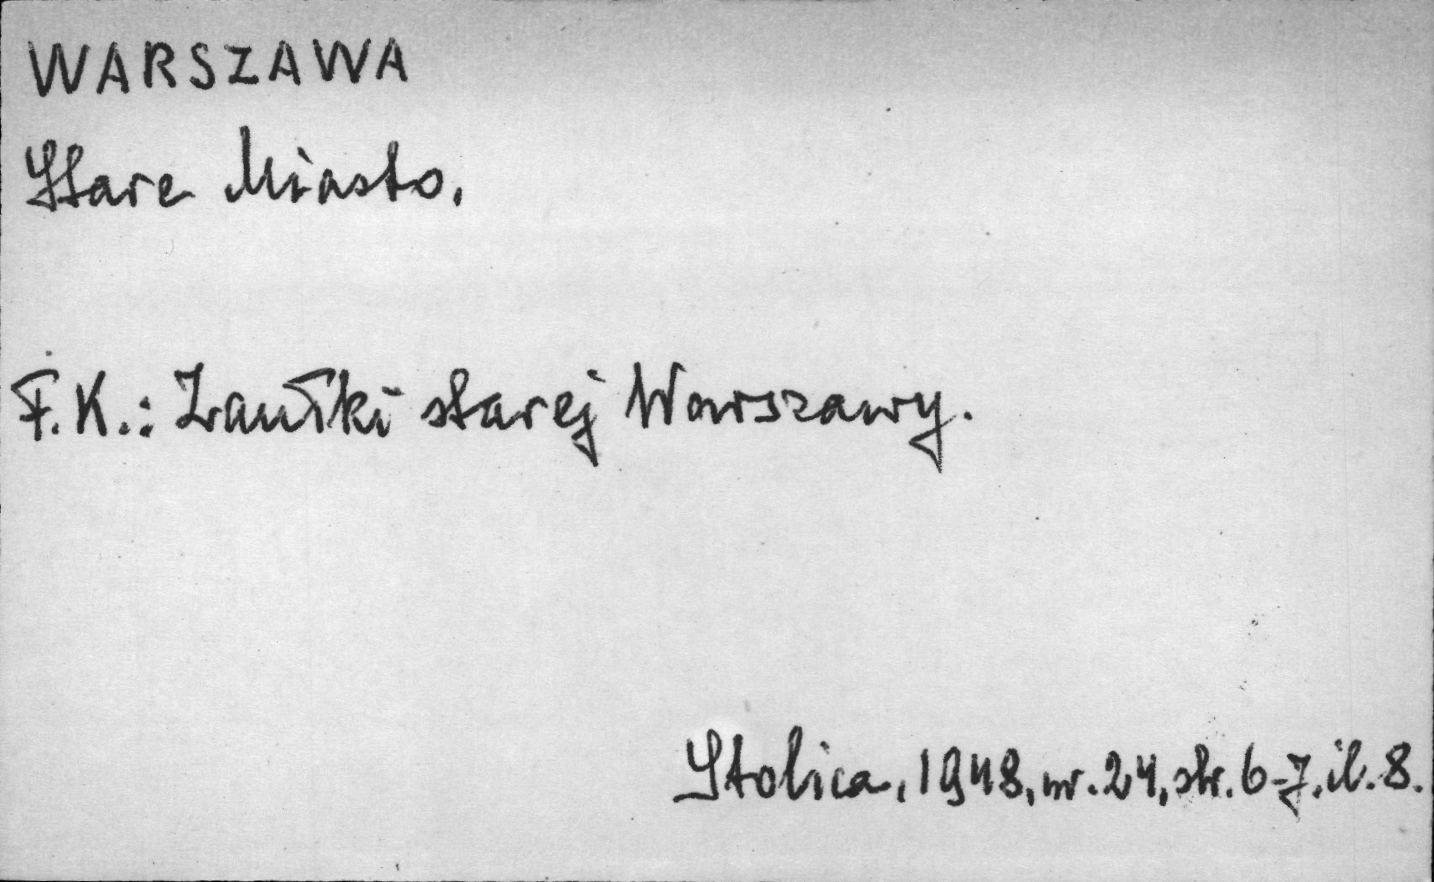 WARSZAWA
Stare Miasto.
F. K.: Zaułki starej Warszawy.
Stolica, 1948, nr. 24, str. 6-7, il. 8.